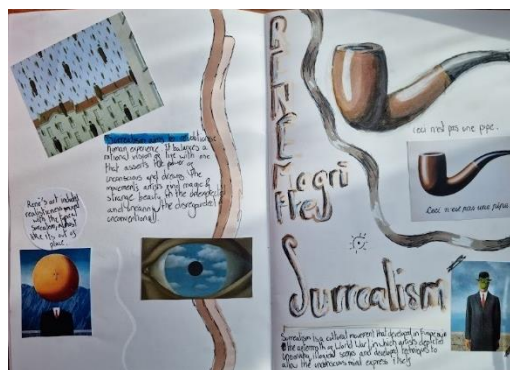 Surrealism aims to revolutionise
human experience. It balances a
rational vision of life with one
that asserts the power of
unconscious and dreams. The
movements artists find magic &
strange beauty in the unexpected
and uncanny, the disregarded &
unconventional.
René's art includes
with the typical
surrealism, almost
like its out of
place.
RENÉ
Magri
Surrealism
ceci n'est pas une pipe.
Ceci n'est pas une pipe.
Surrealism is a cultural movement that developed in Europe in
the aftermath of World War I in which artists depicted
illogical scenes and developed techniques to
allow the unconscious mind express